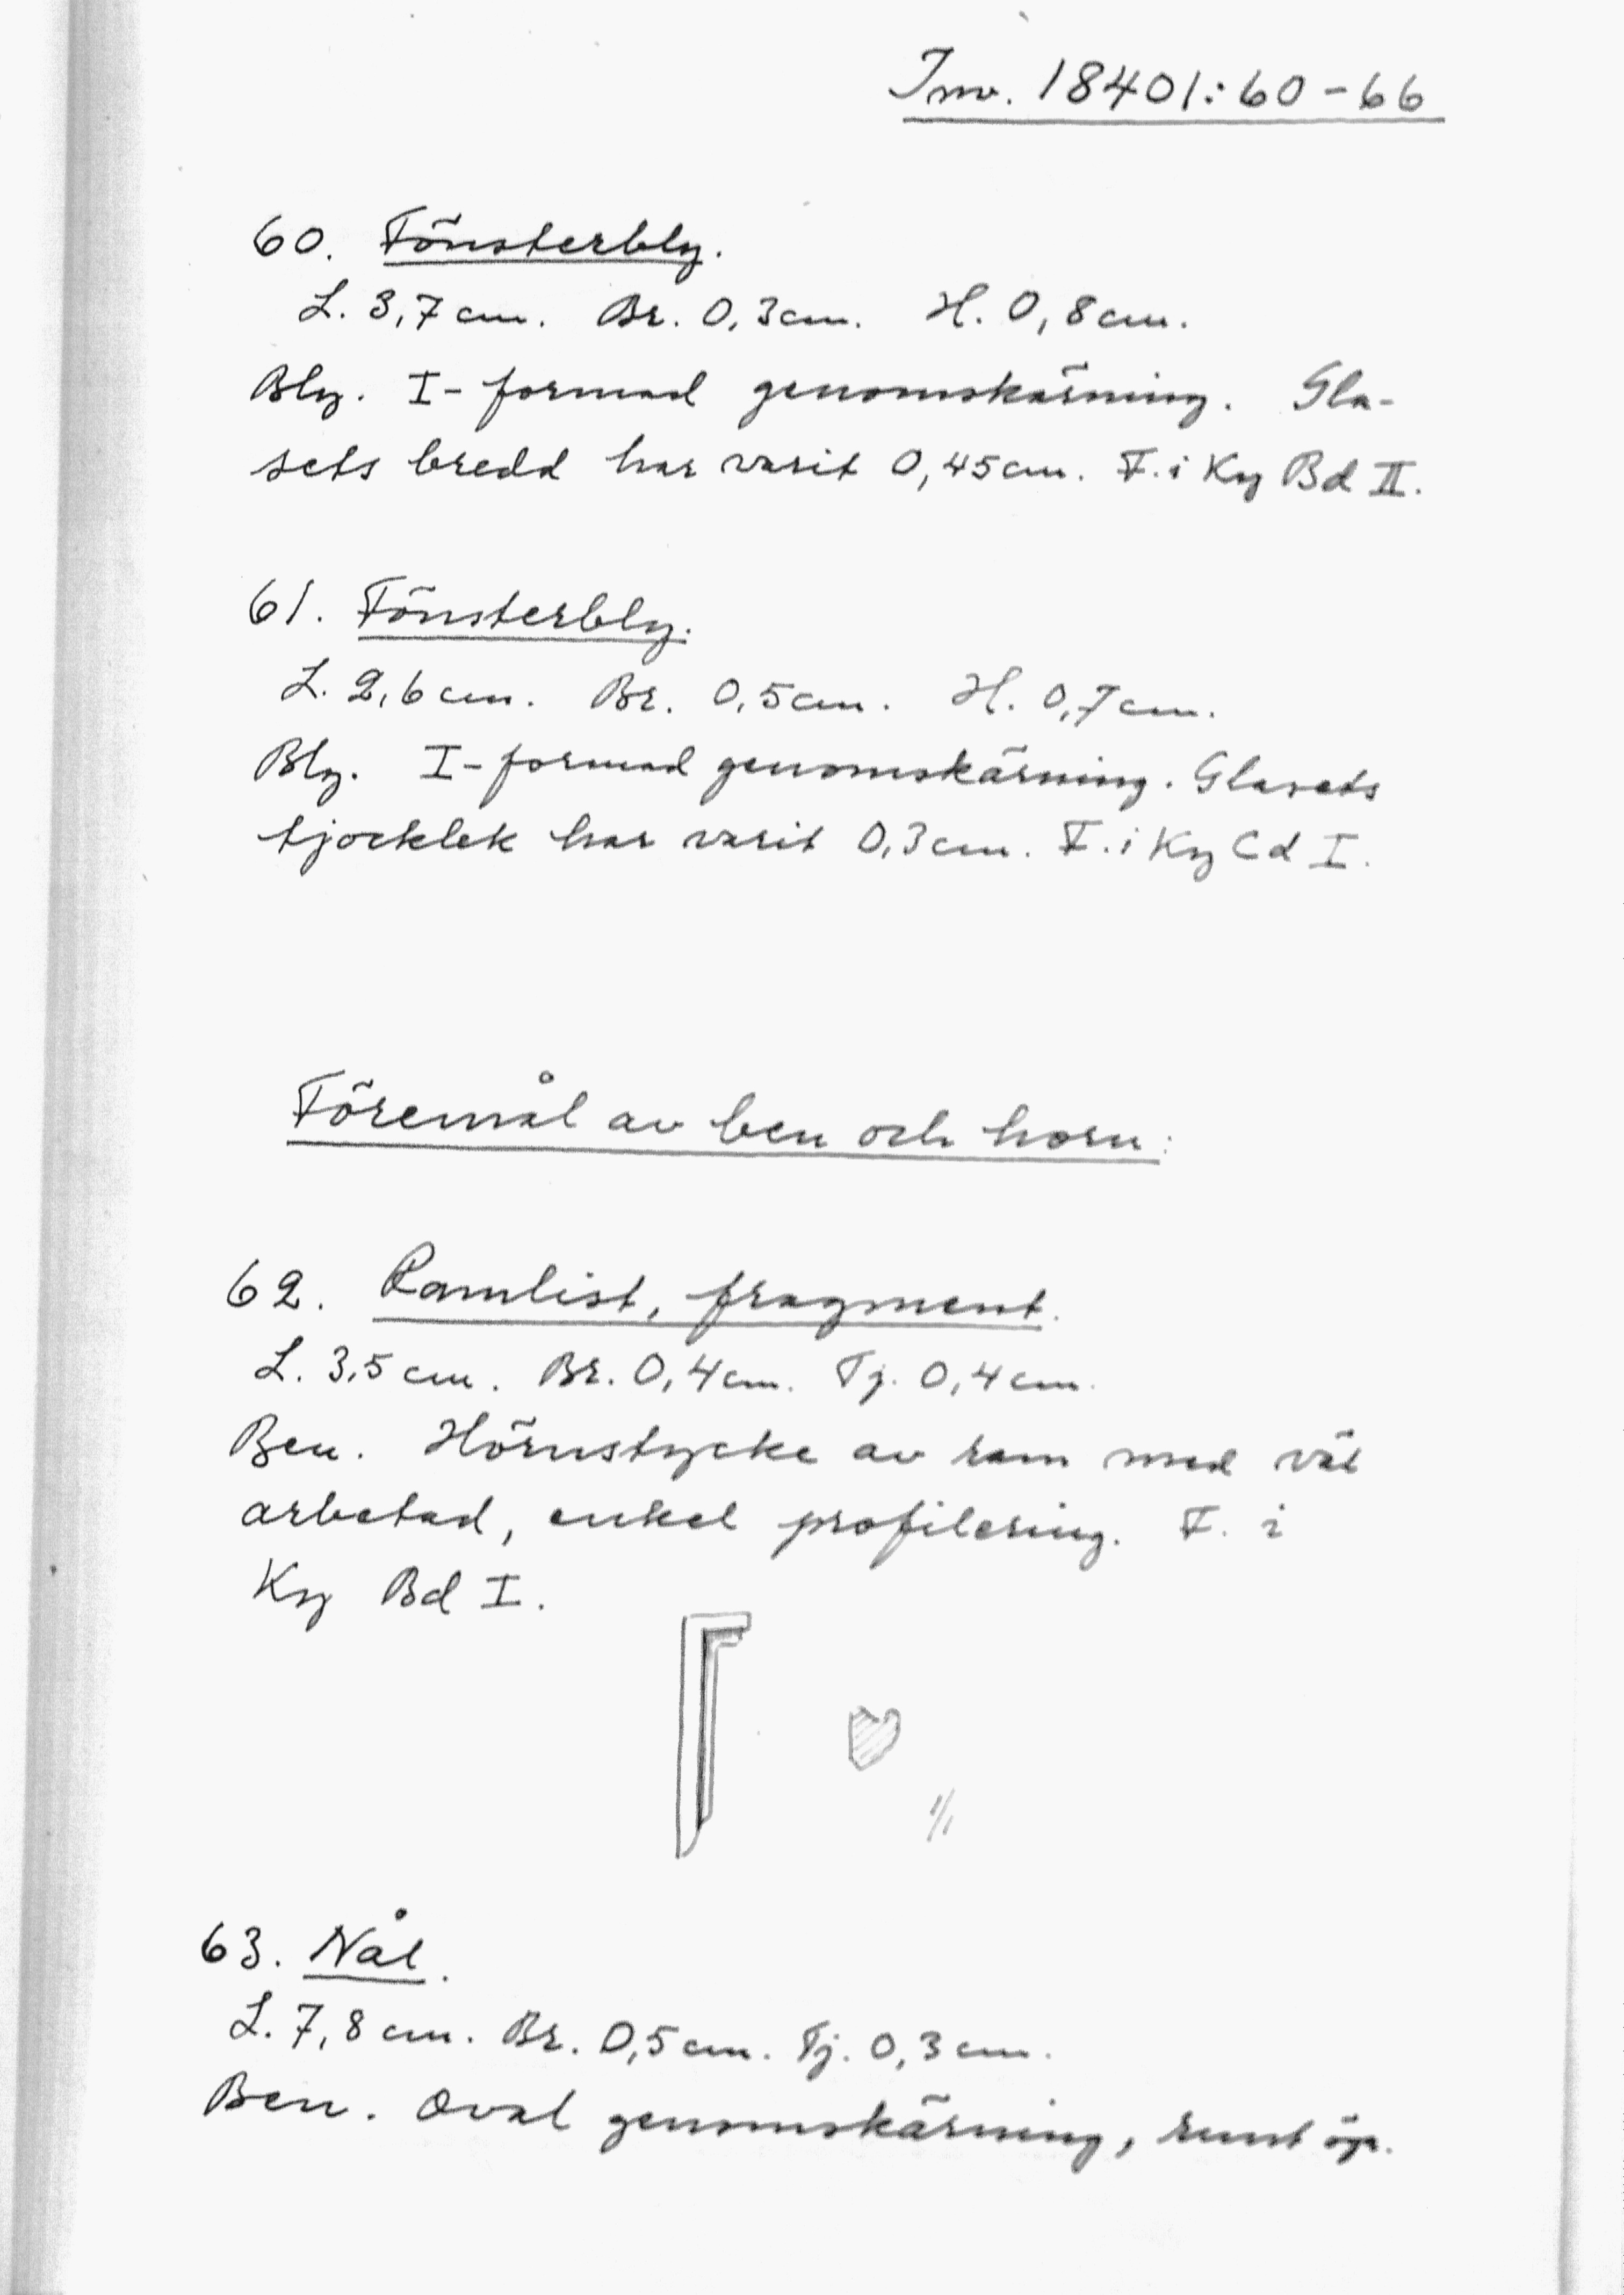 Inv. 18401:60-66
60. Fönsterbly.
L. 3,7 cm. Br. 0,3 cm. H. 0,8 cm.
Bly. I-formad genomskärning. Gla-
sets bredd har varit 0,45 cm. F. i Ky Bd II.
61. Fönsterbly.
L. 2,6 cm. Br. 0,5 cm. H. 0,7 cm.
Bly. I-formad genomskärning. Glasets
tjocklek har varit 0,3 cm. F. i Ky Cd I.
Föremål av ben och horn:
62. Ramlist, fragment.
L. 3,5 cm. Br. 0,4 cm. Tj. 0,4 cm.
Ben. Hörnstycke av ram med väl
arbetad, enkel profilering. F. i
Ky Bd I.
1/1
63. Nål.
L. 7,8 cm. Br. 0,5 cm. Tj. 0,3 cm.
Ben. Oval genomskärning, runt ög.